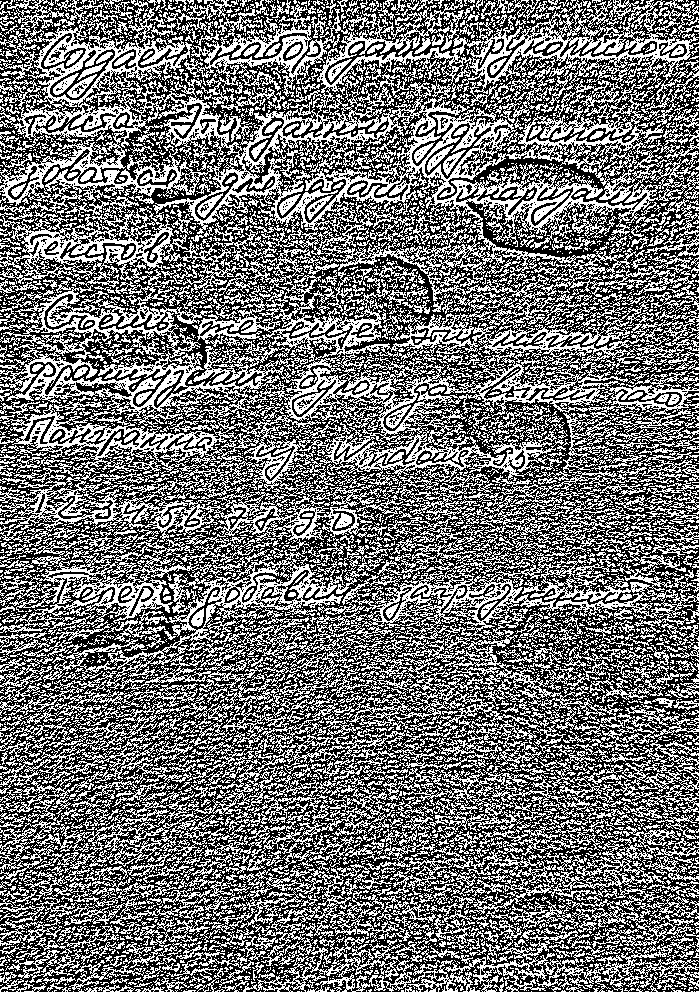 Создаем набор данных рукописного
текста. Эти данные будут исполь-
зоваться для задачи бинаризации
текстов
Съешь же еще этих мягких
французских булок, да выпей чаю
Панграмма из Windows 95
1 2 3 4 5 6 7 8 9 0
Теперь добавим загрязнений